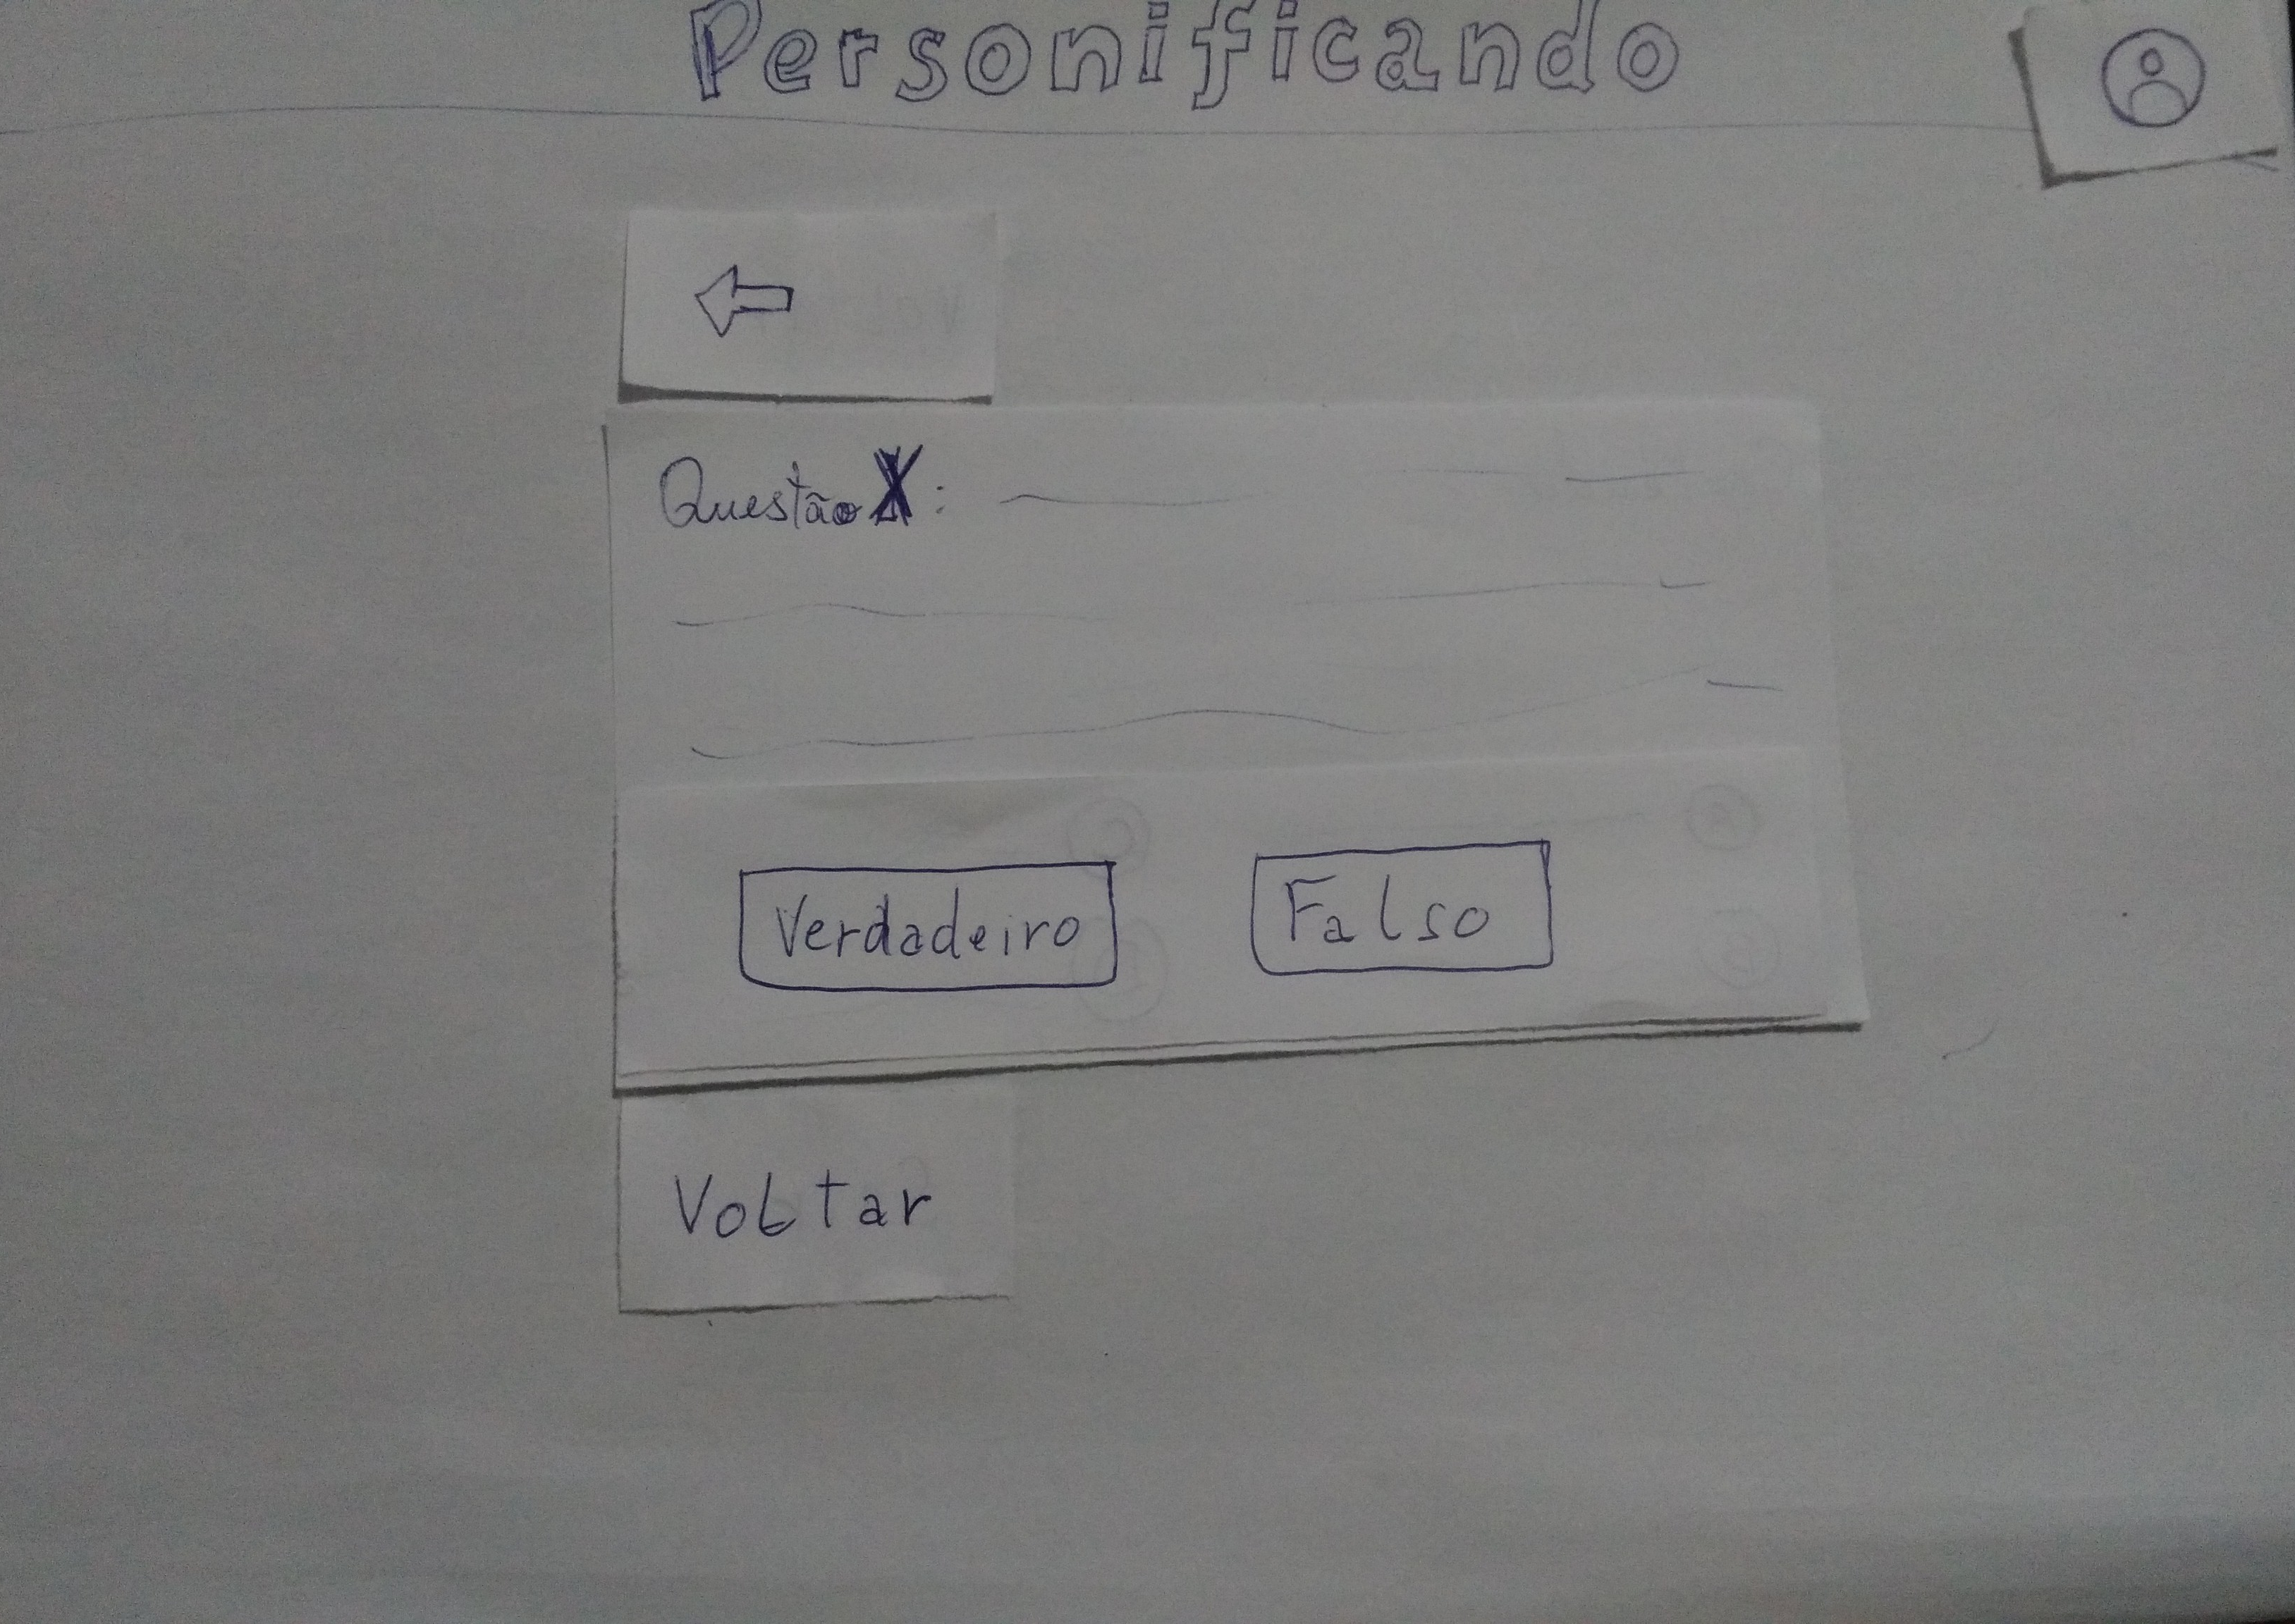 Personificando
Questão X:
Verdadeiro
Falso
Voltar